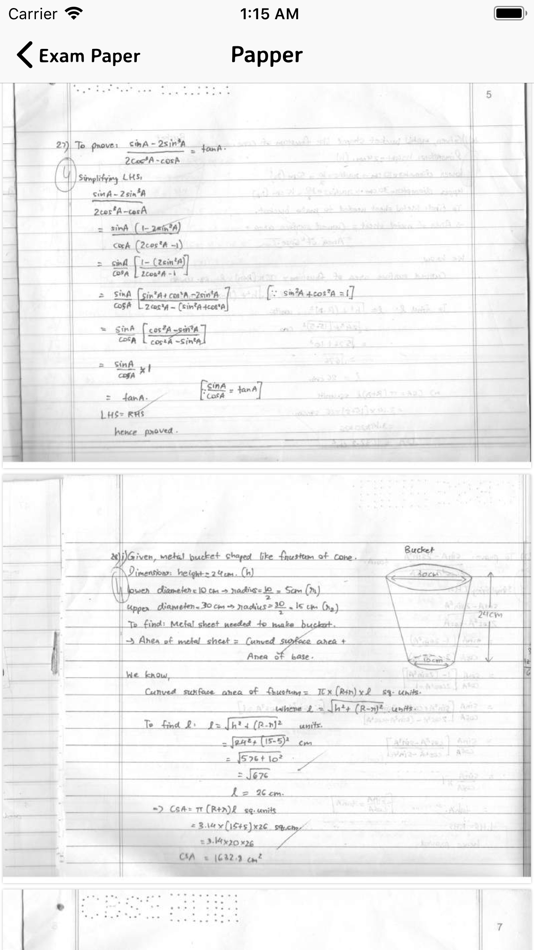 Carrier 1:15 AM
Exam Paper Papper
5
27) To prove: sinA - 2sin³A / 2cos³A - cosA = tanA.
4
Simplifying LHS,
sinA - 2sin³A / 2cos³A - cosA
= sinA (1 - 2sin²A) / cosA (2cos²A - 1)
= sinA/cosA [1 - (2sin²A) / 2cos²A - 1]
= sinA/cosA [sin²A + cos²A - 2sin²A / 2cos²A - (sin²A + cos²A)] [∵ sin²A + cos²A = 1]
= sinA/cosA [cos²A - sin²A / cos²A - sin²A]
= sinA/cosA × 1
= tanA. [∵ sinA/cosA = tanA]
LHS = RHS
hence proved.
28) i) Given, metal bucket shaped like frustum of cone.
Bucket
Dimensions: height = 24 cm. (h)
4
lower diameter = 10 cm → radius = 10/2 = 5cm (r)
upper diameter = 30 cm → radius = 30/2 = 15 cm (R)
24cm
10cm
To find: Metal sheet needed to make bucket.
→ Area of metal sheet = Curved surface area +
Area of base.
We know,
Curved surface area of frustum = π × (R+r) × l sq. units.
where l = √h² + (R-r)² units.
To find l: l = √h² + (R-r)² units.
= √24² + (15-5)² cm
= √576 + 10²
= √676
l = 26 cm.
⇒ CSA = π (R+r) l sq. units
= 3.14 × (15+5) × 26 sq.cm
= 3.14 × 20 × 26
CSA = 1632.8 cm²
CBSE
7